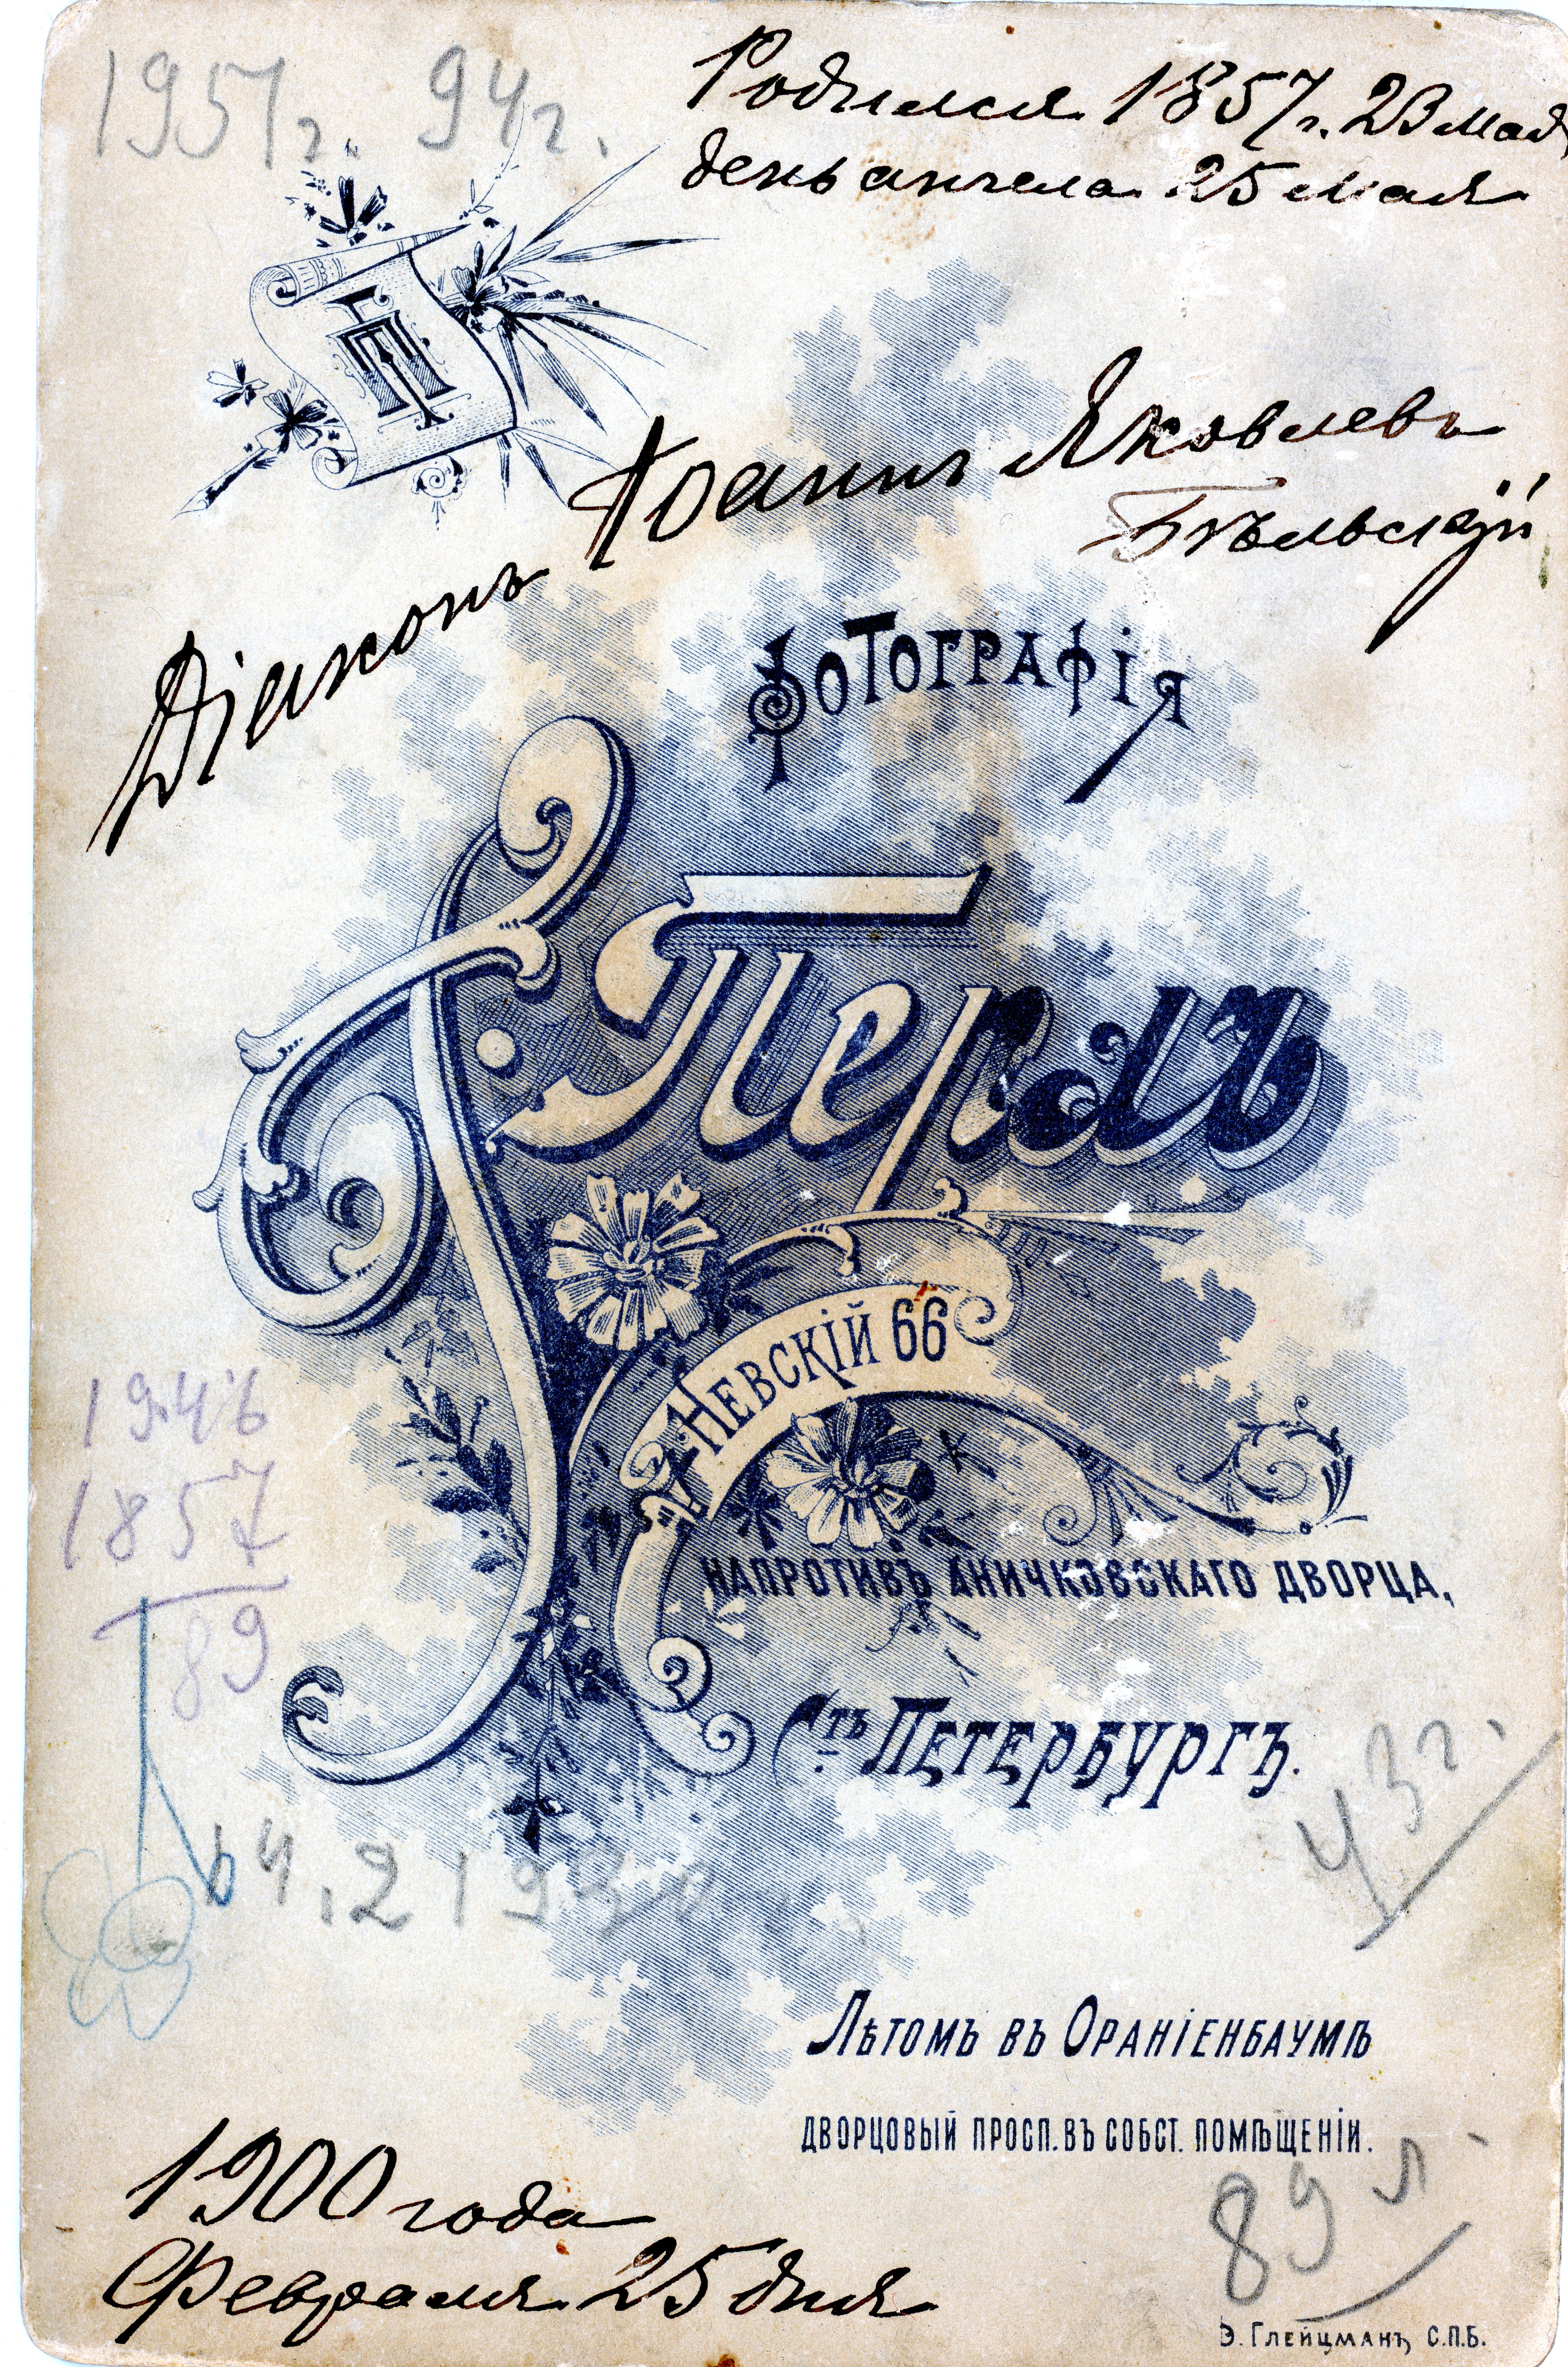 1951г. 94г.
Родился 1857г. 23 мая,
день ангела 25 мая
ГП
Діаконъ Іоаннъ Яковлевъ
Бѣльскій
Фотографія
Г. Перлъ
Невскій 66
напротивъ Аничковскаго дворца,
Стъ Петербургъ.
1946
1857
89
43 г.
Лѣтомъ въ Ораніенбаумѣ
дворцовый просп. въ собст. помѣщеніи.
89 л
1900 года
Февраля 25 дня
Э. Глейцманъ С.П.Б.